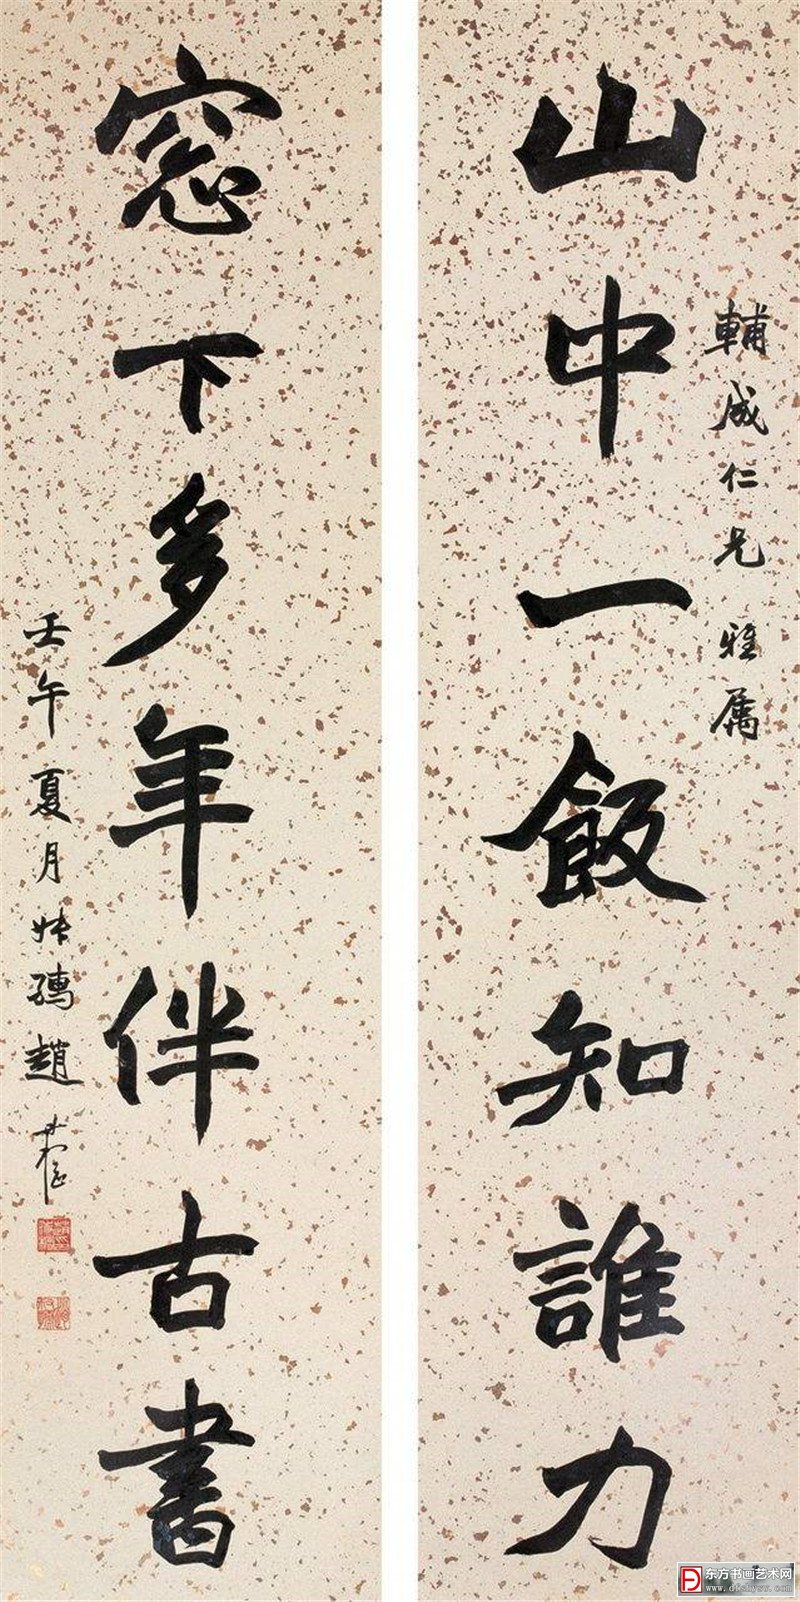 輔成仁兄 雅属
山中一飯知誰力
窓下多年伴古書
壬午夏月叔孺趙時棡
东方书画艺术网